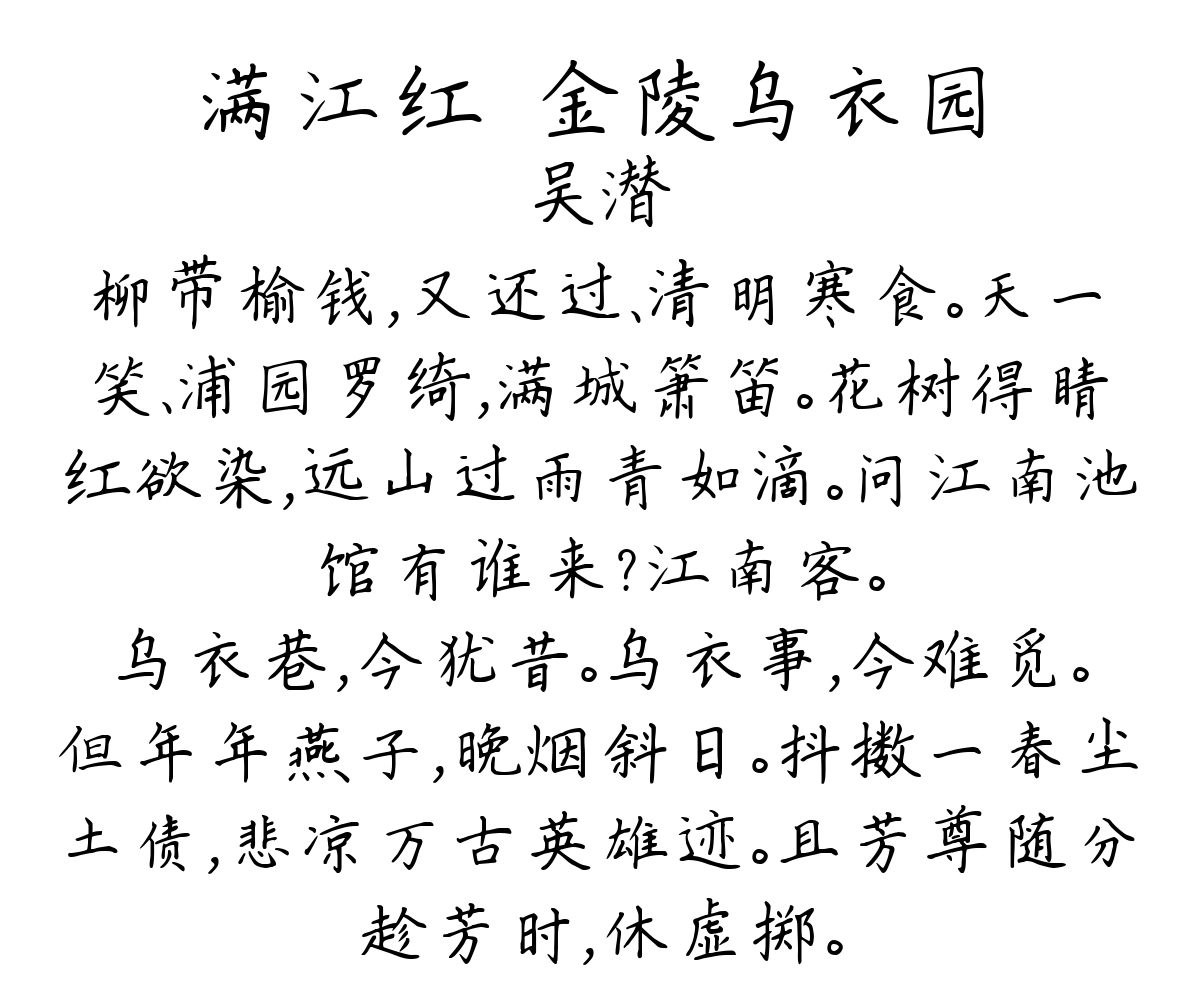 满江红 金陵乌衣园
吴潜
柳带榆钱,又还过、清明寒食。天一
笑、浦园罗绮,满城箫笛。花树得晴
红欲染,远山过雨青如滴。问江南池
馆有谁来?江南客。
乌衣巷,今犹昔。乌衣事,今难觅。
但年年燕子,晚烟斜日。抖擞一春尘
土债,悲凉万古英雄迹。且芳尊随分
趁芳时,休虚掷。